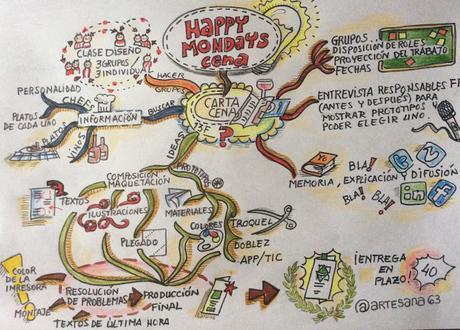 HAPPY
MONDAYS
cena
CLASE DISEÑO
3 GRUPOS/
3 INDIVIDUAL
HACER
GRUPOS
PERSONALIDAD
CHEFS
PLATOS
DE CADA UNO
PLATOS
VINOS
INFORMACIÓN
BUSCAR
CARTA
CENA
?
IDEAS
PROTOTIPOS
GRUPOS..
DISPOSICIÓN DE ROLES
PROYECCIÓN DEL TRABAJO
FECHAS
ENTREVISTA RESPONSABLES
(ANTES Y DESPUÉS) PARA
MOSTRAR PROTOTIPOS
PODER ELEGIR UNO.
Yo
BLA!
in
f
MEMORIA, EXPLICACIÓN Y DIFUSIÓN
BLA!
BLA!
COMPOSICIÓN
MAQUETACIÓN
TEXTOS
ILUSTRACIONES
MATERIALES
COLORES
PLEGADO
TROQUEL
DOBLEZ
APP/TIC
COLOR
DE LA
IMPRESORA
MONTAJE
RESOLUCIÓN
DE PROBLEMAS
PRODUCCIÓN
FINAL
TEXTOS DE ÚLTIMA HORA
¡ENTREGA
EN
PLAZO
40
@artesana63